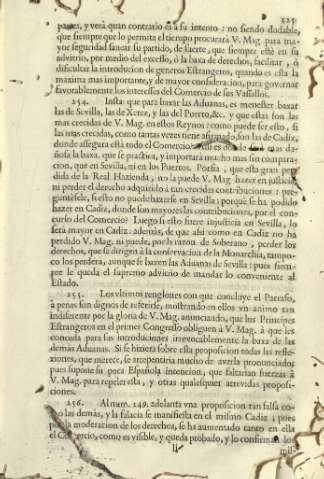 225
partes, y verà quan contrario es à su intento: no siendo dudable,
que siempre que lo permita el tiempo procurarà V. Mag. para ma-
yor seguridad sanear su partido, de suerte, que siempre estè en su
advitrio, por medio del excesso, ò la baxa de derechos, facilitar, ò
dificultar la introducion de generos Estrangeros, quando es esta la
maxima mas importante, y de mayor consideracion, para governar
favorablemente los interesses del Comercio de sus Vassallos.
254. Insta que para baxar las Aduanas, es menester baxar
las de Sevilla, las de Xerez, y las del Puerto, &c. y que estas son las
mas crecidas de V. Mag. en estos Reynos: como puede ser esto, si
las mas crecidas, como tantas vezes tiene assegurado, son las de Cadiz,
donde assegura està todo el Comercio
diosa la baxa, que se practica, y importarà mucho mas sin compara-
cion, que en Sevilla, ni en los Puertos. Porfia, que esta gran per-
dida de la Real Hazienda, no la puede V. Mag. hazer en justicia,
ni perder el derecho adquirido à tan crecidas contribuciones: pre-
guntasele, si esto no puede hazerse en Sevilla; porque se ha podido
hazer en Cadiz, donde son mayores las contribuciones, por el con-
curso del Comercio? Luego si esto fuere injusticia en Sevilla, lo
serà mayor en Cadiz: ademàs, de que assi como en Cadiz no ha
perdido V. Mag. ni puede, por la razon de Soberano, perder los
derechos, que se dirigen à la conservacion de la Monarchia, tampo-
co los perderà, aunque se baxen las Aduanas de Sevilla: pues siem-
pre le queda el supremo advitrio de mandar lo conveniente al
Estado.
255. Los vltimos renglones con que concluye el Parrafo,
à penas son dignos de referirse, mostrando en ellos vn animo tan
indiferente por la gloria de V. Mag. anunciando, que los Principes
Estrangeros en el primer Congresso obliguen à V. Mag. à que les
conceda para sus introduciones irrevocablemente la baxa de las
demàs Aduanas. Si se hiziera sobre esta proposicion todas las refle-
xiones, que merece, se arrepentiria mucho de averla pronunciado,
pues supone su poca Española intencion, que faltaràn fuerças à
V. Mag. para repeler esta, y otras qualesquier atrevidas proposi-
ciones.
256. Al num. 249. adelanta vna proposicion tan falsa co-
mo las demàs, y la falacia se manifiesta en el mismo Cadiz; pues
por la moderacion de los derechos, se ha aumentado tanto en ella
el Comercio, como es visible, y queda probado, y lo confiessan los
mis-